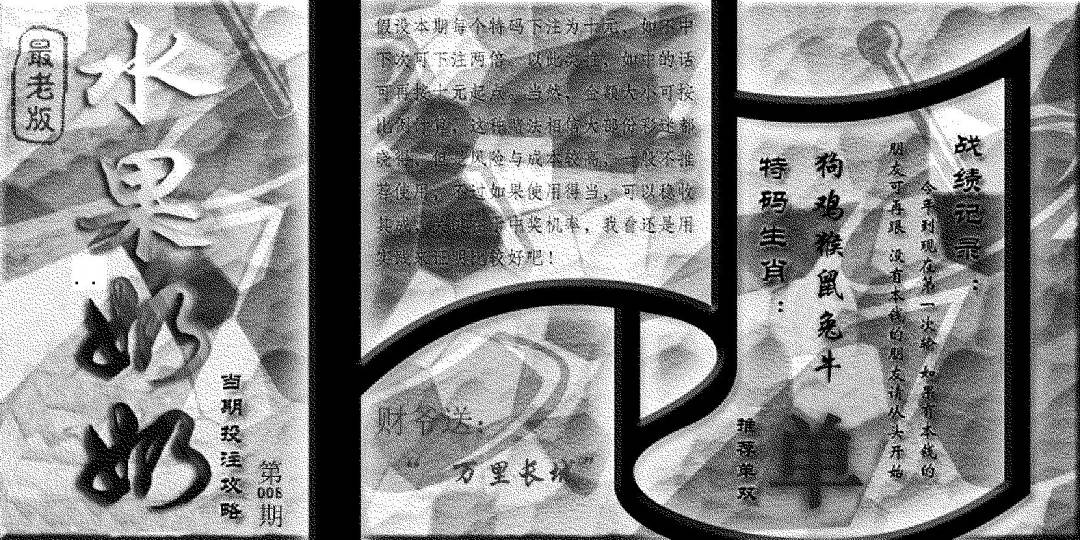 最老版
水果奶奶
当期投注攻略
第008期
假设本期每个特码下注为十元，如不中
下次可下注两倍，以此类推，如中的话
可再按十元起点。当然，金额大小可按
比例
这种
法相信大部份彩迷都
风险与成本较高，一般不推
荐使用，不过如果使用得当，可以稳收
中奖机率，我看还是用
比较好吧！
财爷送：
“万里长城”
特码生肖：
狗鸡猴鼠兔牛
推荐单双
单
战绩记录：
今年到现在第一次输 如果有本钱的
朋友可再跟 没有本钱的朋友请从头开始